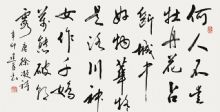 何人不愛
牡丹花占
斷城中
好物華疑
是洛川神
女作千嬌
萬態破朝
霞 唐徐凝詩
辛卯書